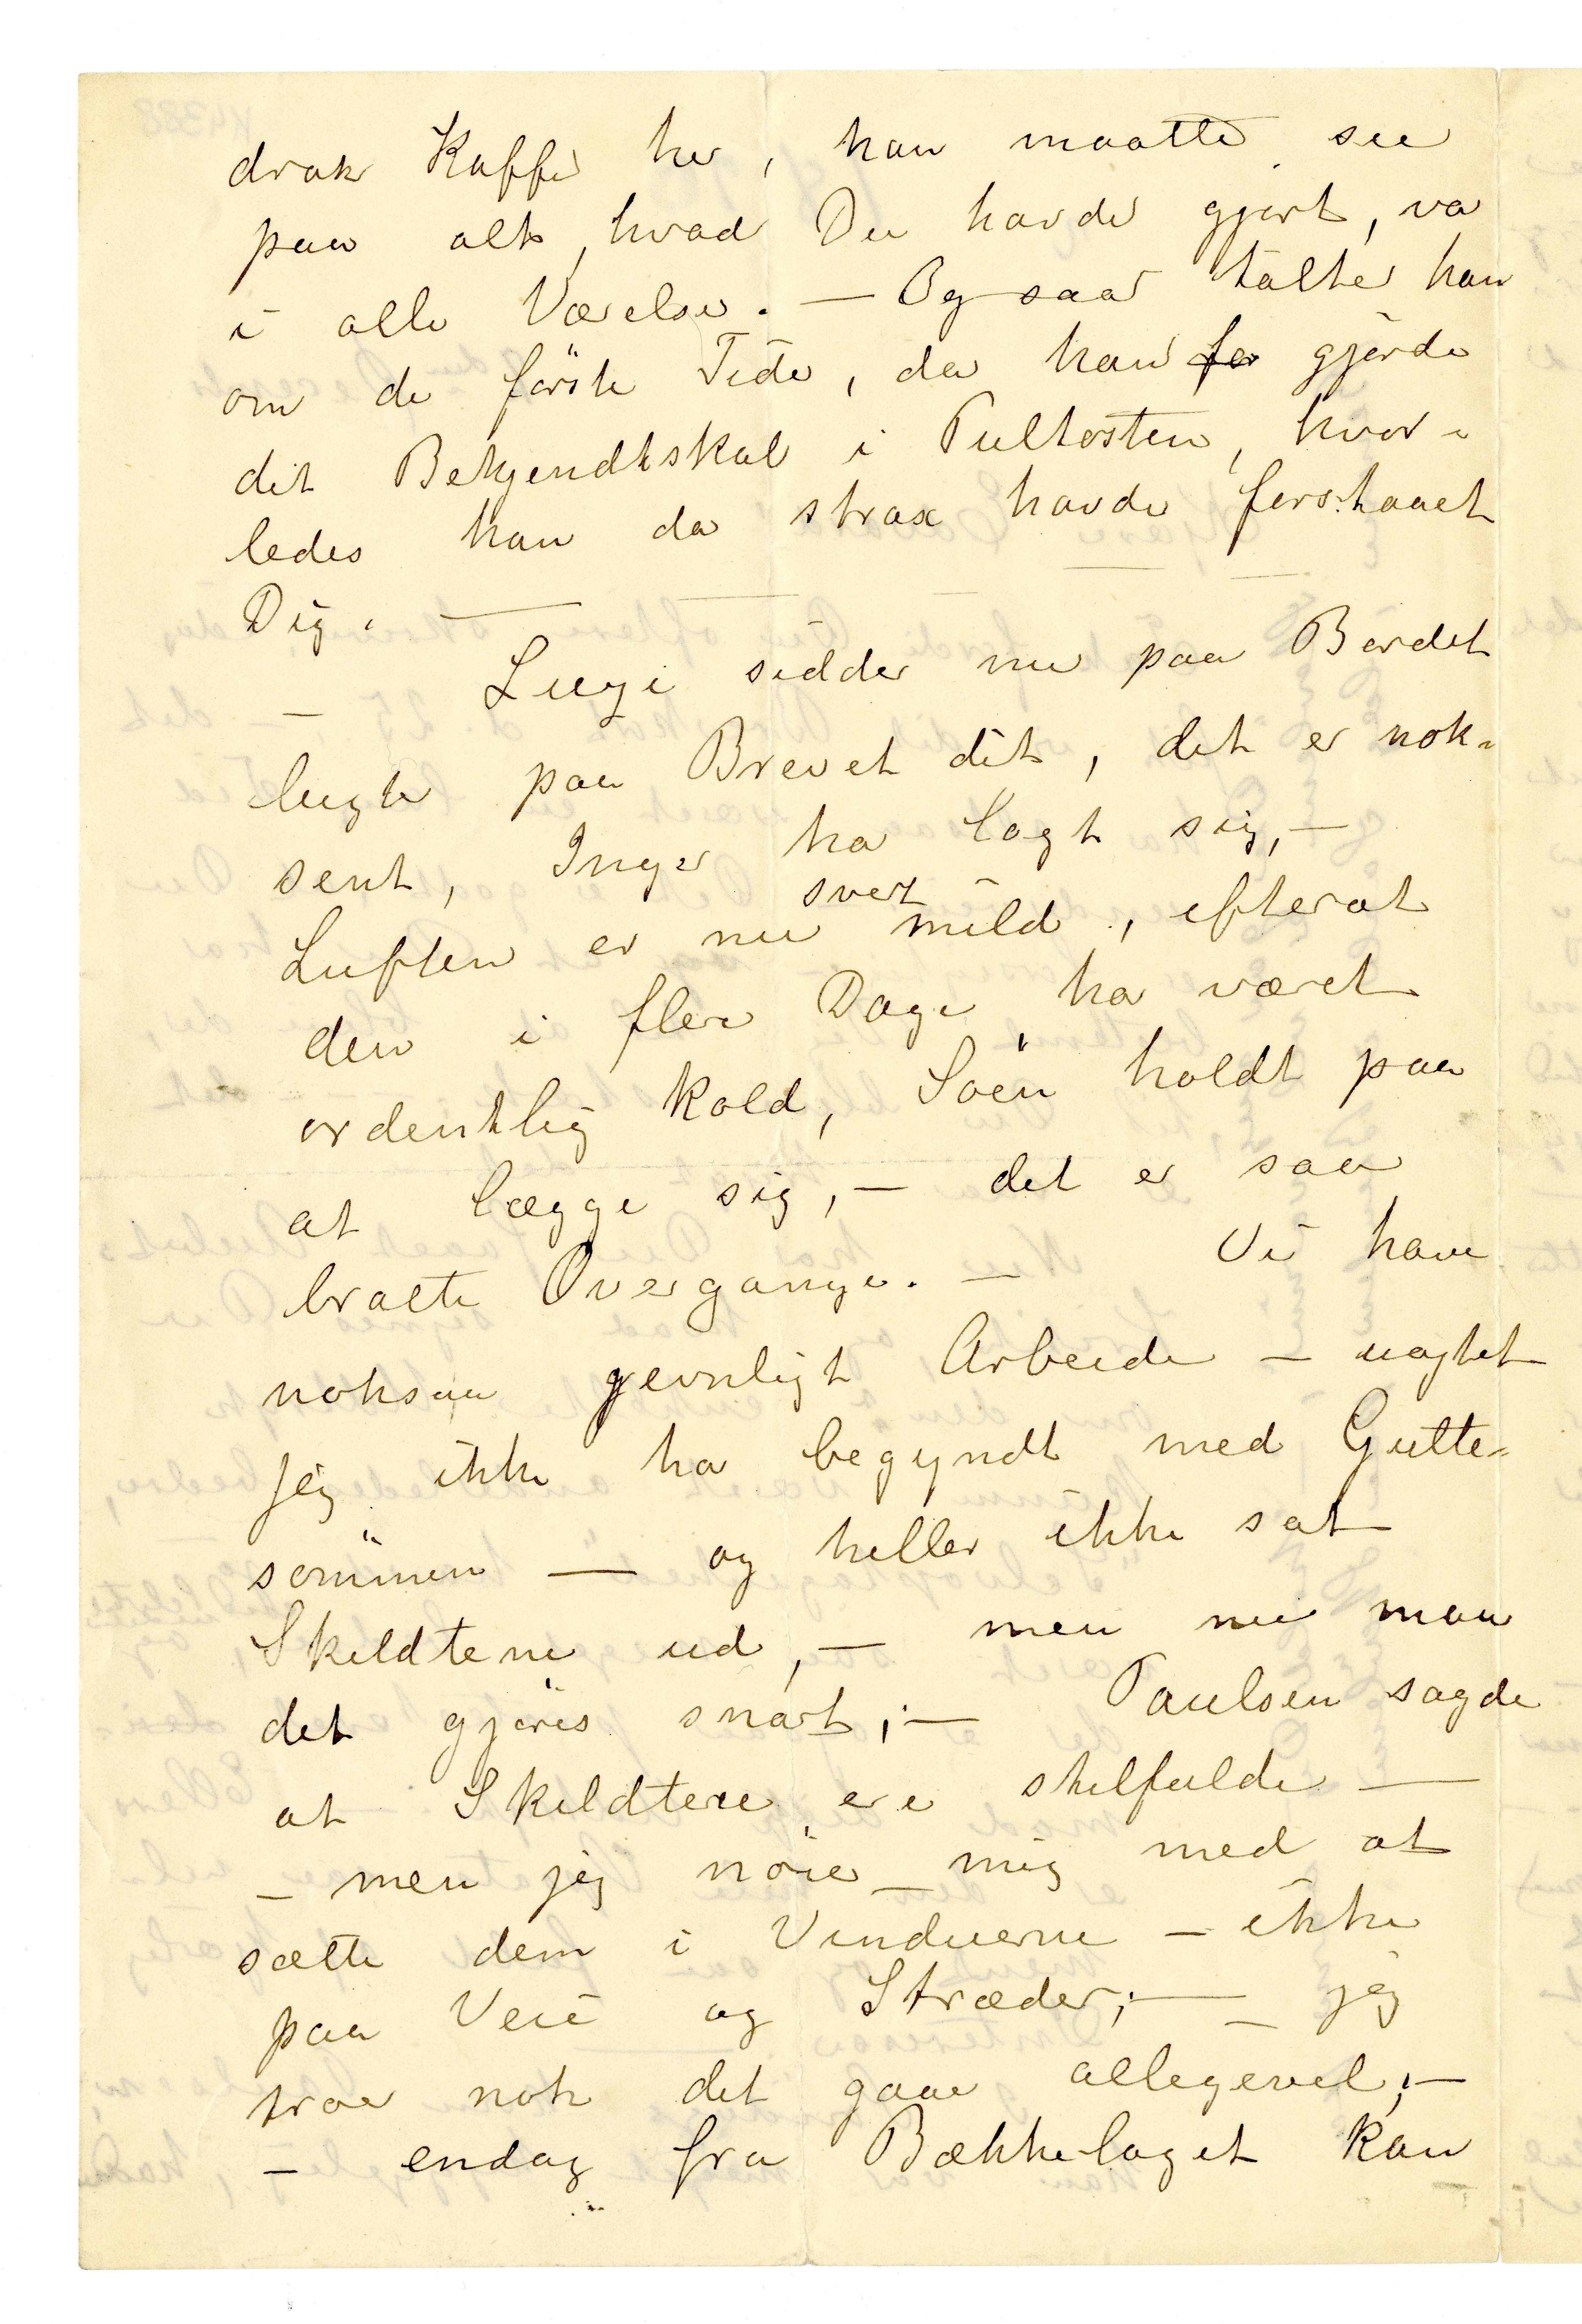 drak Kaffe her, han maatte see
paa alt, hvad Du havde gjort, var
i alle Værelser. — Og saa talte han
om de förste Tider, da han for gjörde
dit Bekjendtskab i Pultosten, hvor-
ledes han da strax havde forstaaet
Dig. —
— Luyi sidder nu paa Bordet
lugter paa Brevet dit, det er nok-
sent, Inger har lagt sig, —
Luften er nu svert mild, efterat
den i flere Dage har været
ordentlig kold, Söen holdt paa
at lægge sig, — det er saa
bratte Overgange. — Vi have
noksaa jevnligt Arbeide — uagtet
jeg ikke har begyndt med Gutte-
sömmen — og heller ikke sat
Skildtene ud, — men nu maa
det gjöres snart; — Paulsen sagde
at Skildtene ere stilfulde —
— men jeg nöier mig med at
sætte dem i Vinduerne — ikke
paa Veie og Stræder; — jeg
troer nok det gaaer allegevel; —
— endog fra Bækkelaget kan